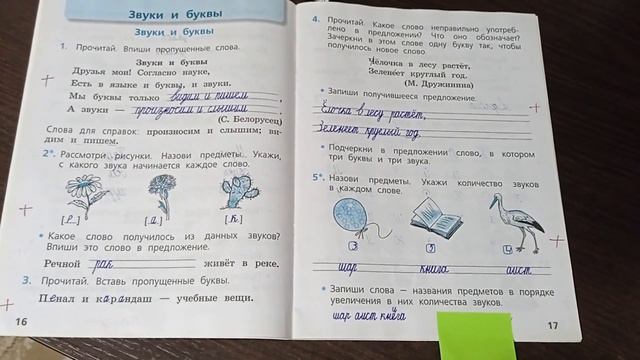 Звуки и буквы
Звуки и буквы
1. Прочитай. Впиши пропущенные слова.
Звуки и буквы
Друзья мои! Согласно науке,
Есть в языке и буквы, и звуки.
Мы буквы только видим и пишем,
А звуки — произносим и слышим.
(С. Белорусец)
Слова для справок: произносим и слышим; ви-
дим и пишем.
2*. Рассмотри рисунки. Назови предметы. Укажи,
с какого звука начинается каждое слово.
[р] [а] [к]
• Какое слово получилось из данных звуков?
Впиши это слово в предложение.
Речной рак живёт в реке.
3. Прочитай. Вставь пропущенные буквы.
Пенал и карандаш — учебные вещи.
16
4. Прочитай. Какое слово неправильно употреб-
лено в предложении? Что оно обозначает?
Зачеркни в этом слове одну букву так, чтобы
получилось новое слово.
Чёлочка в лесу растёт,
Зеленеет круглый год.
(М. Дружинина)
• Запиши получившееся предложение.
Ёлочка в лесу растёт,
Зеленеет круглый год.
• Подчеркни в предложении слово, в котором
три буквы и три звука.
5*. Назови предметы. Укажи количество звуков
в каждом слове.
3 5 4
шар книга аист
• Запиши слова — названия предметов в порядке
увеличения в них количества звуков.
шар аист книга
17